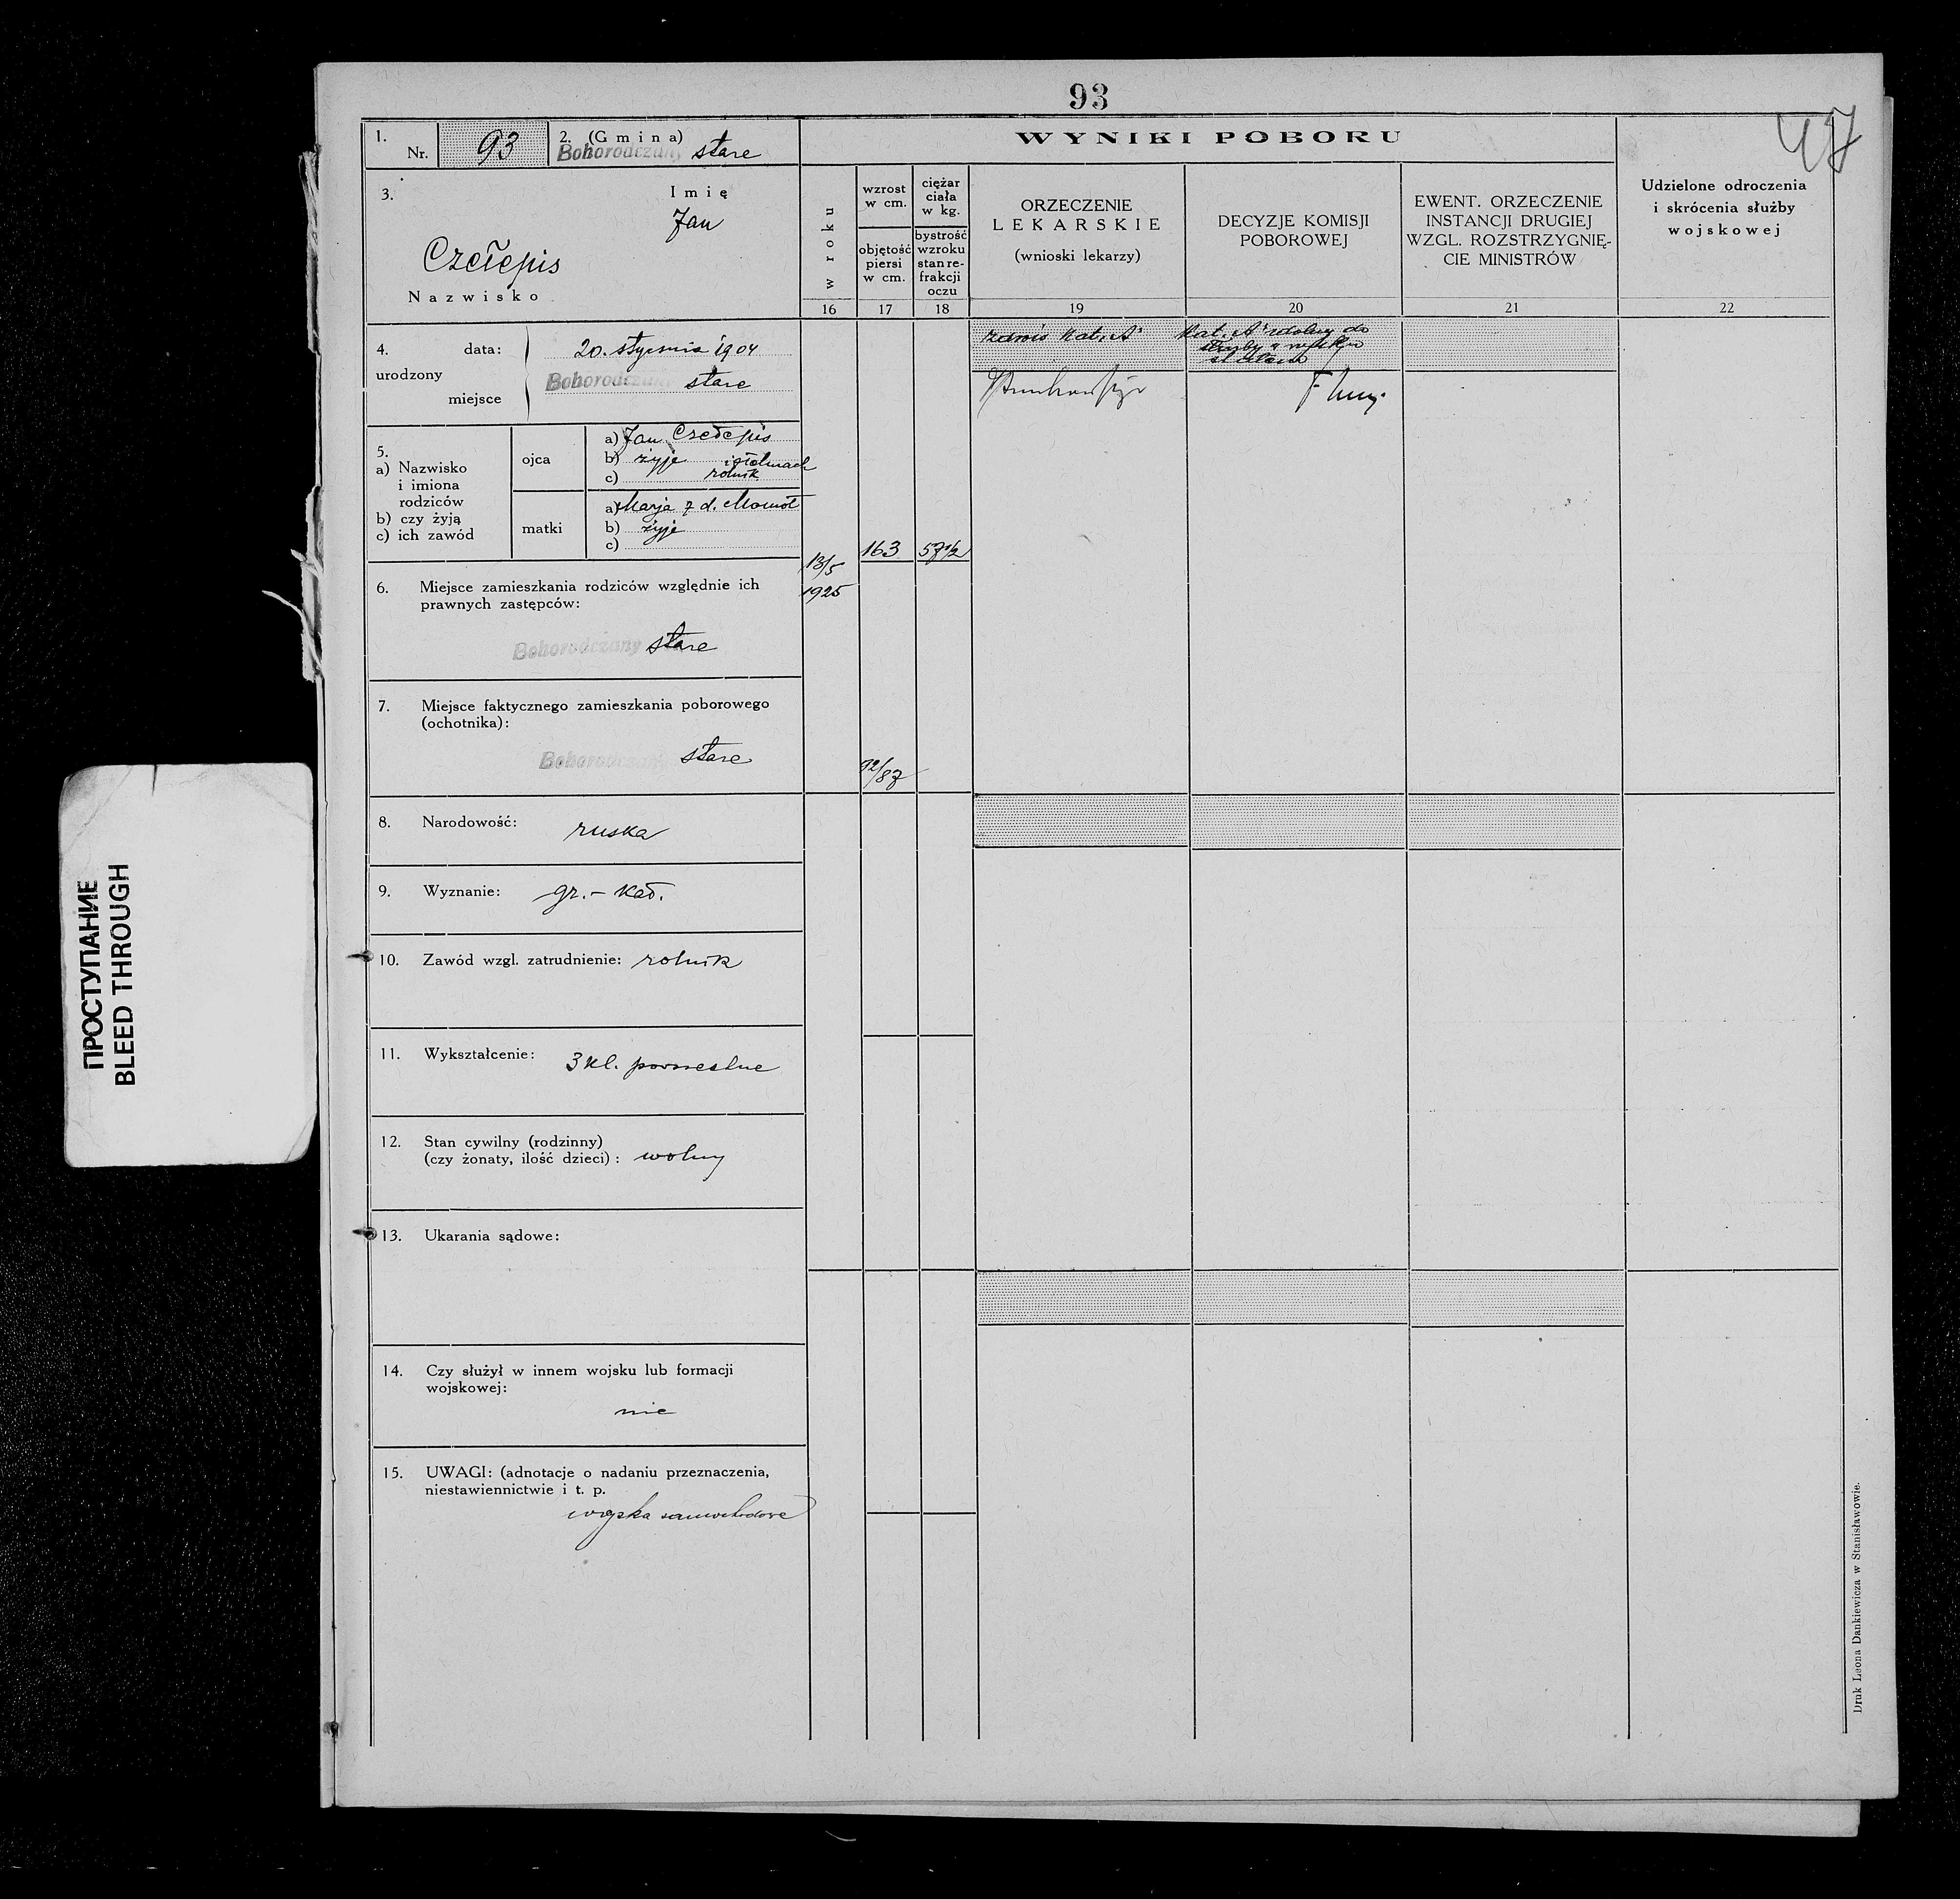 93
47
1.
Nr. 93
2. (Gmina)
Bohorodczany stare
WYNIKI POBORU
3.
Imię
Jan
Czełepis
Nazwisko
w roku
wzrost
w cm.
objętość
piersi
w cm.
ciężar
ciała
w kg.
bystrość
wzroku
stan re-
frakcji
oczu
ORZECZENIE
LEKARSKIE
(wnioski lekarzy)
DECYZJE KOMISJI
POBOROWEJ
EWENT. ORZECZENIE
INSTANCJI DRUGIEJ
WZGL. ROZSTRZYGNIĘ-
CIE MINISTRÓW
Udzielone odroczenia
i skrócenia służby
wojskowej
16 17 18 19 20 21 22
4.
urodzony
data: 20. stycznia 1904
miejsce Bohorodczany stare
5.
a) Nazwisko
i imiona
rodziców
b) czy żyją
c) ich zawód
ojca
a) Jan Czełepis
b) żyje
c) rolnik
matki
a) Marja z d.
b) żyje
c)
6. Miejsce zamieszkania rodziców względnie ich
prawnych zastępców:
Bohorodczany stare
7. Miejsce faktycznego zamieszkania poborowego
(ochotnika):
Bohorodczany stare
8. Narodowość: ruska
9. Wyznanie: gr.-kat.
10. Zawód wzgl. zatrudnienie: rolnik
11. Wykształcenie: 3 kl. powszechne
12. Stan cywilny (rodzinny)
(czy żonaty, ilość dzieci): wolny
13. Ukarania sądowe:
14. Czy służył w innem wojsku lub formacji
wojskowej:
nie
15. UWAGI: (adnotacje o nadaniu przeznaczenia,
niestawiennictwie i t. p.
wojska samochodowe
13/5
1925
163
57 1/2
92/87
kat. A
kat. A zdolny do
służby w wojsku
Druk Leona Dankiewicza w Stanisławowie.
ПРОСТУПАНИЕ
BLEED THROUGH